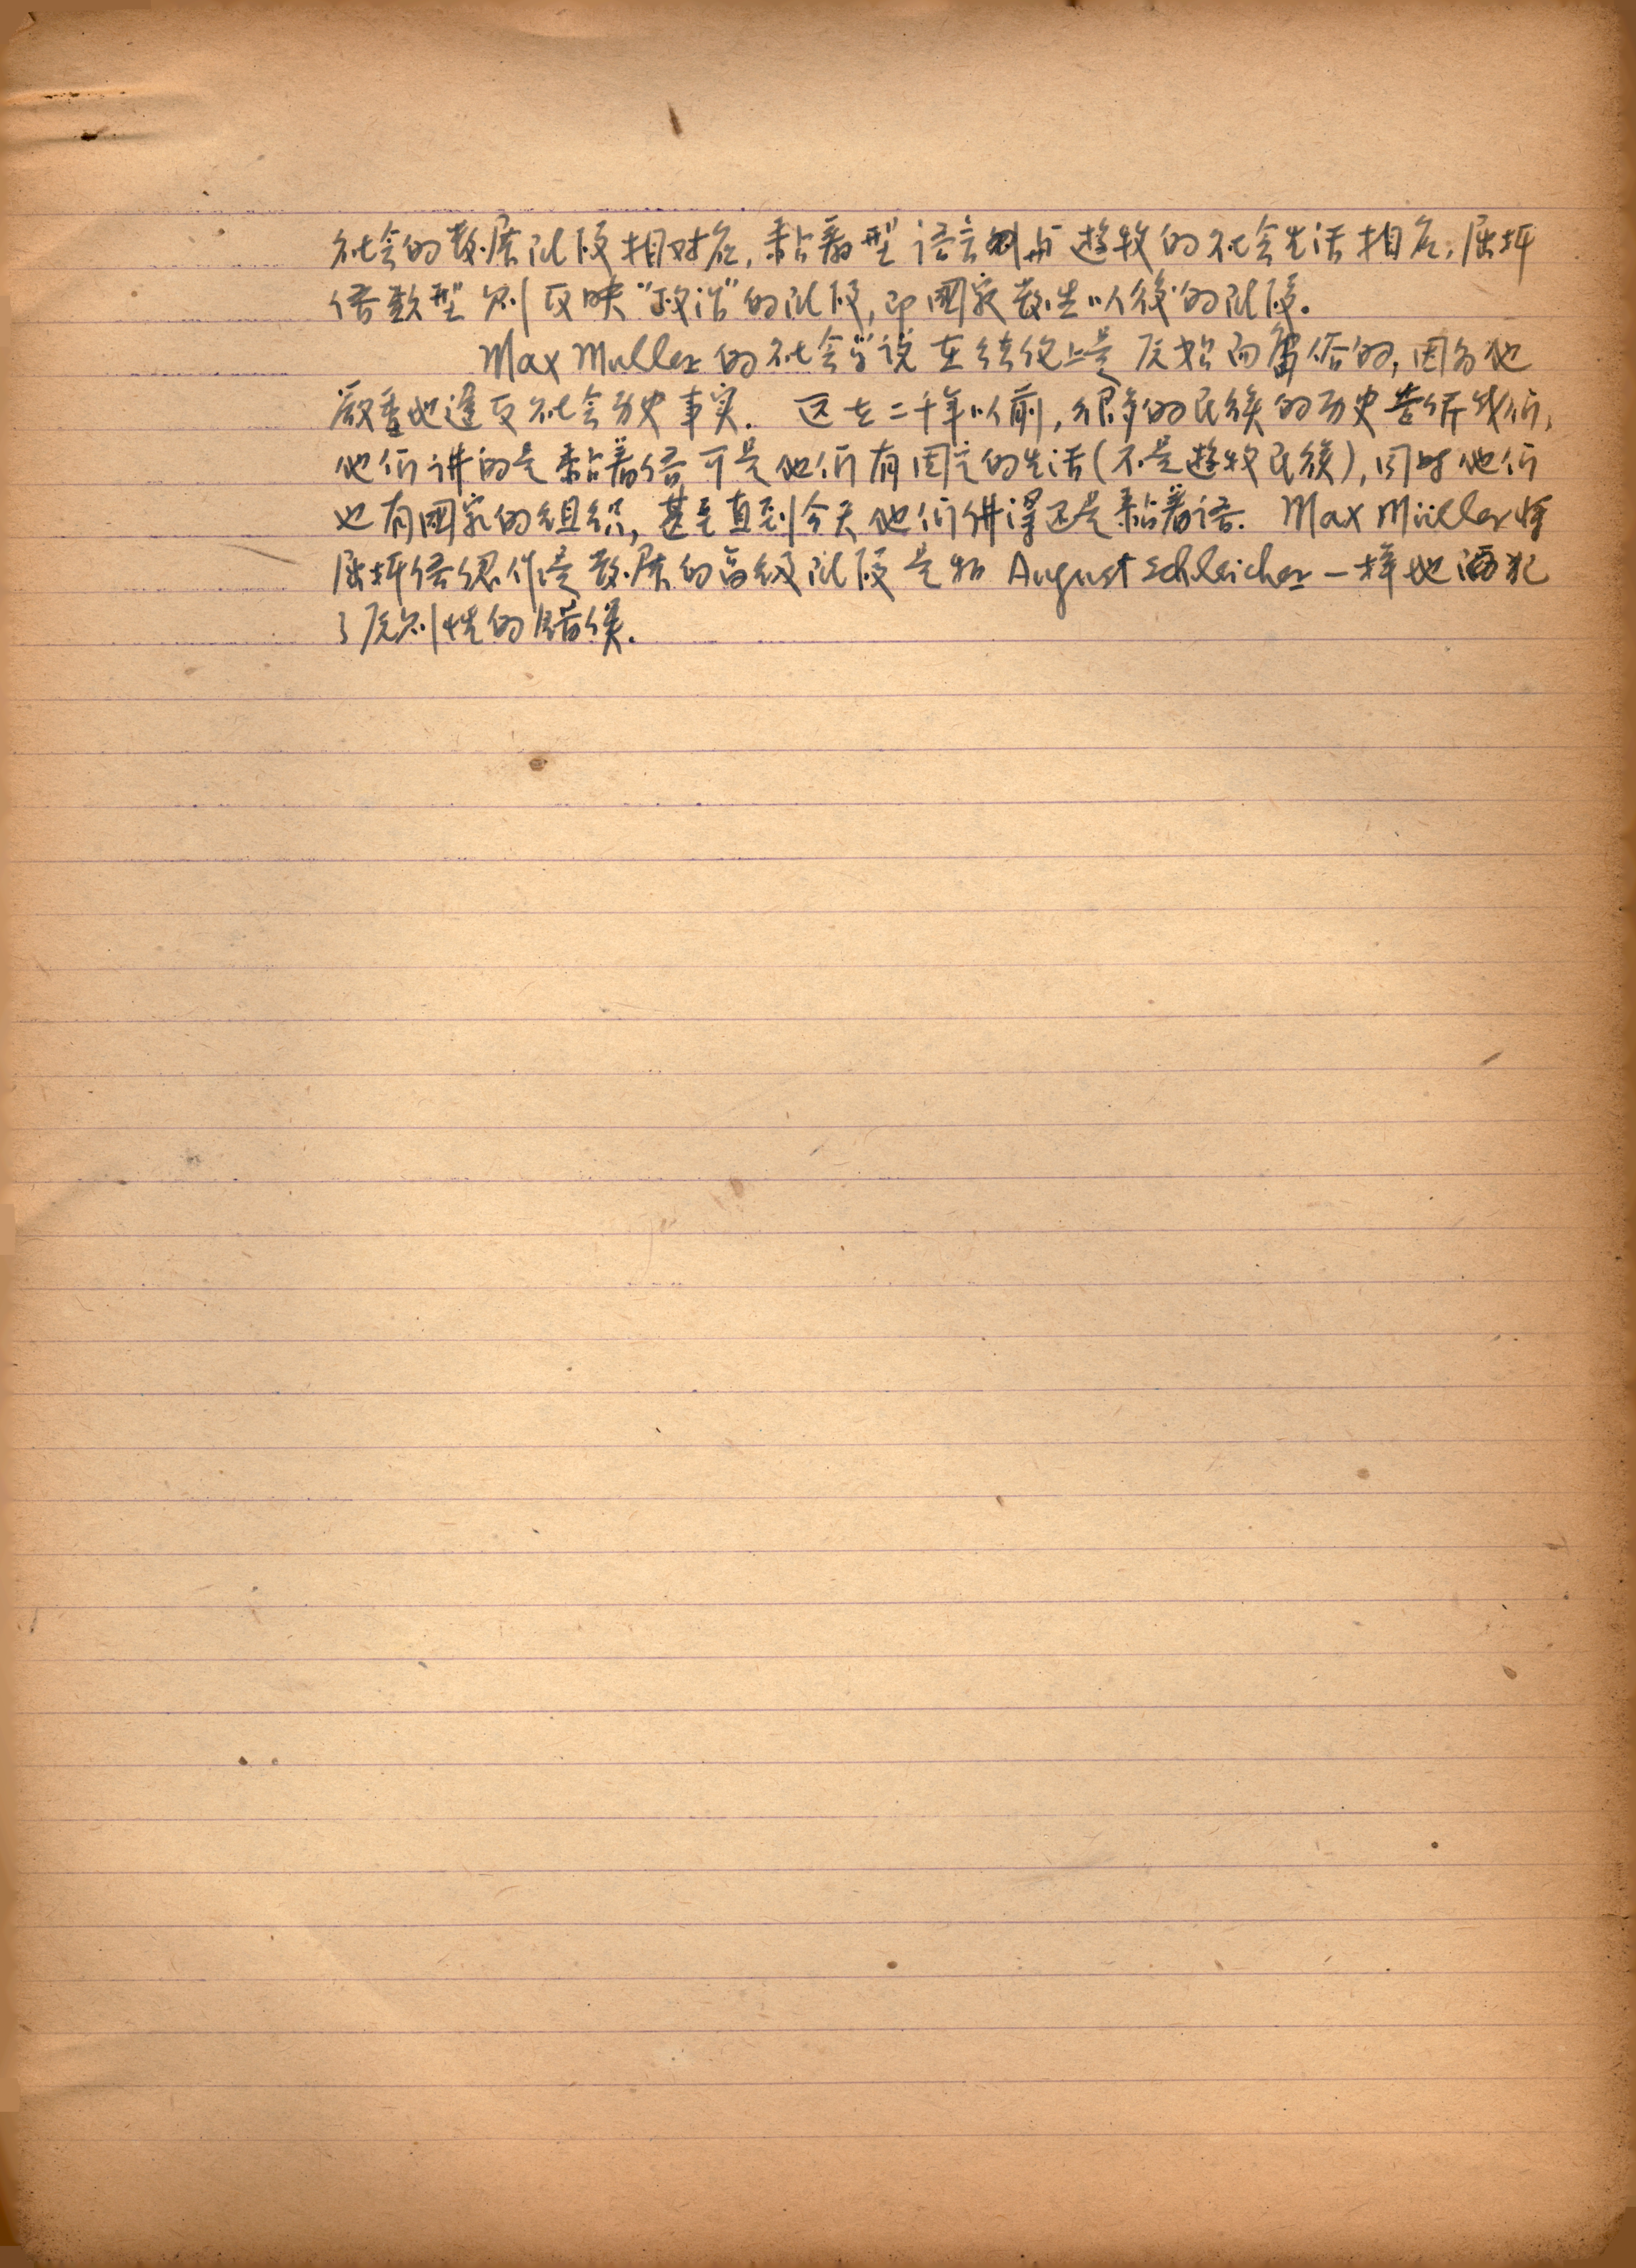 社会的发展阶段相对应，黏着型语言则与游牧的社会生活相应，屈折
语类型则反映"政治"的阶段，即國家发生以後的阶段。
Max Muller的社会学说在结纹上是原始而庸俗的，因为他
严重地違反社会历史事实. 远在二千年以前，很多的民族的历史告诉我们，
他们讲的是黏着语，可是他们有固定的生活(不是遊牧民族)，同时他们
也有國家的组织，甚至直到今天他们讲得还是黏着语. Max Müller将
屈折语認作是发展的高级阶段是和August Schleicher一样地 犯
了原则性的错误.